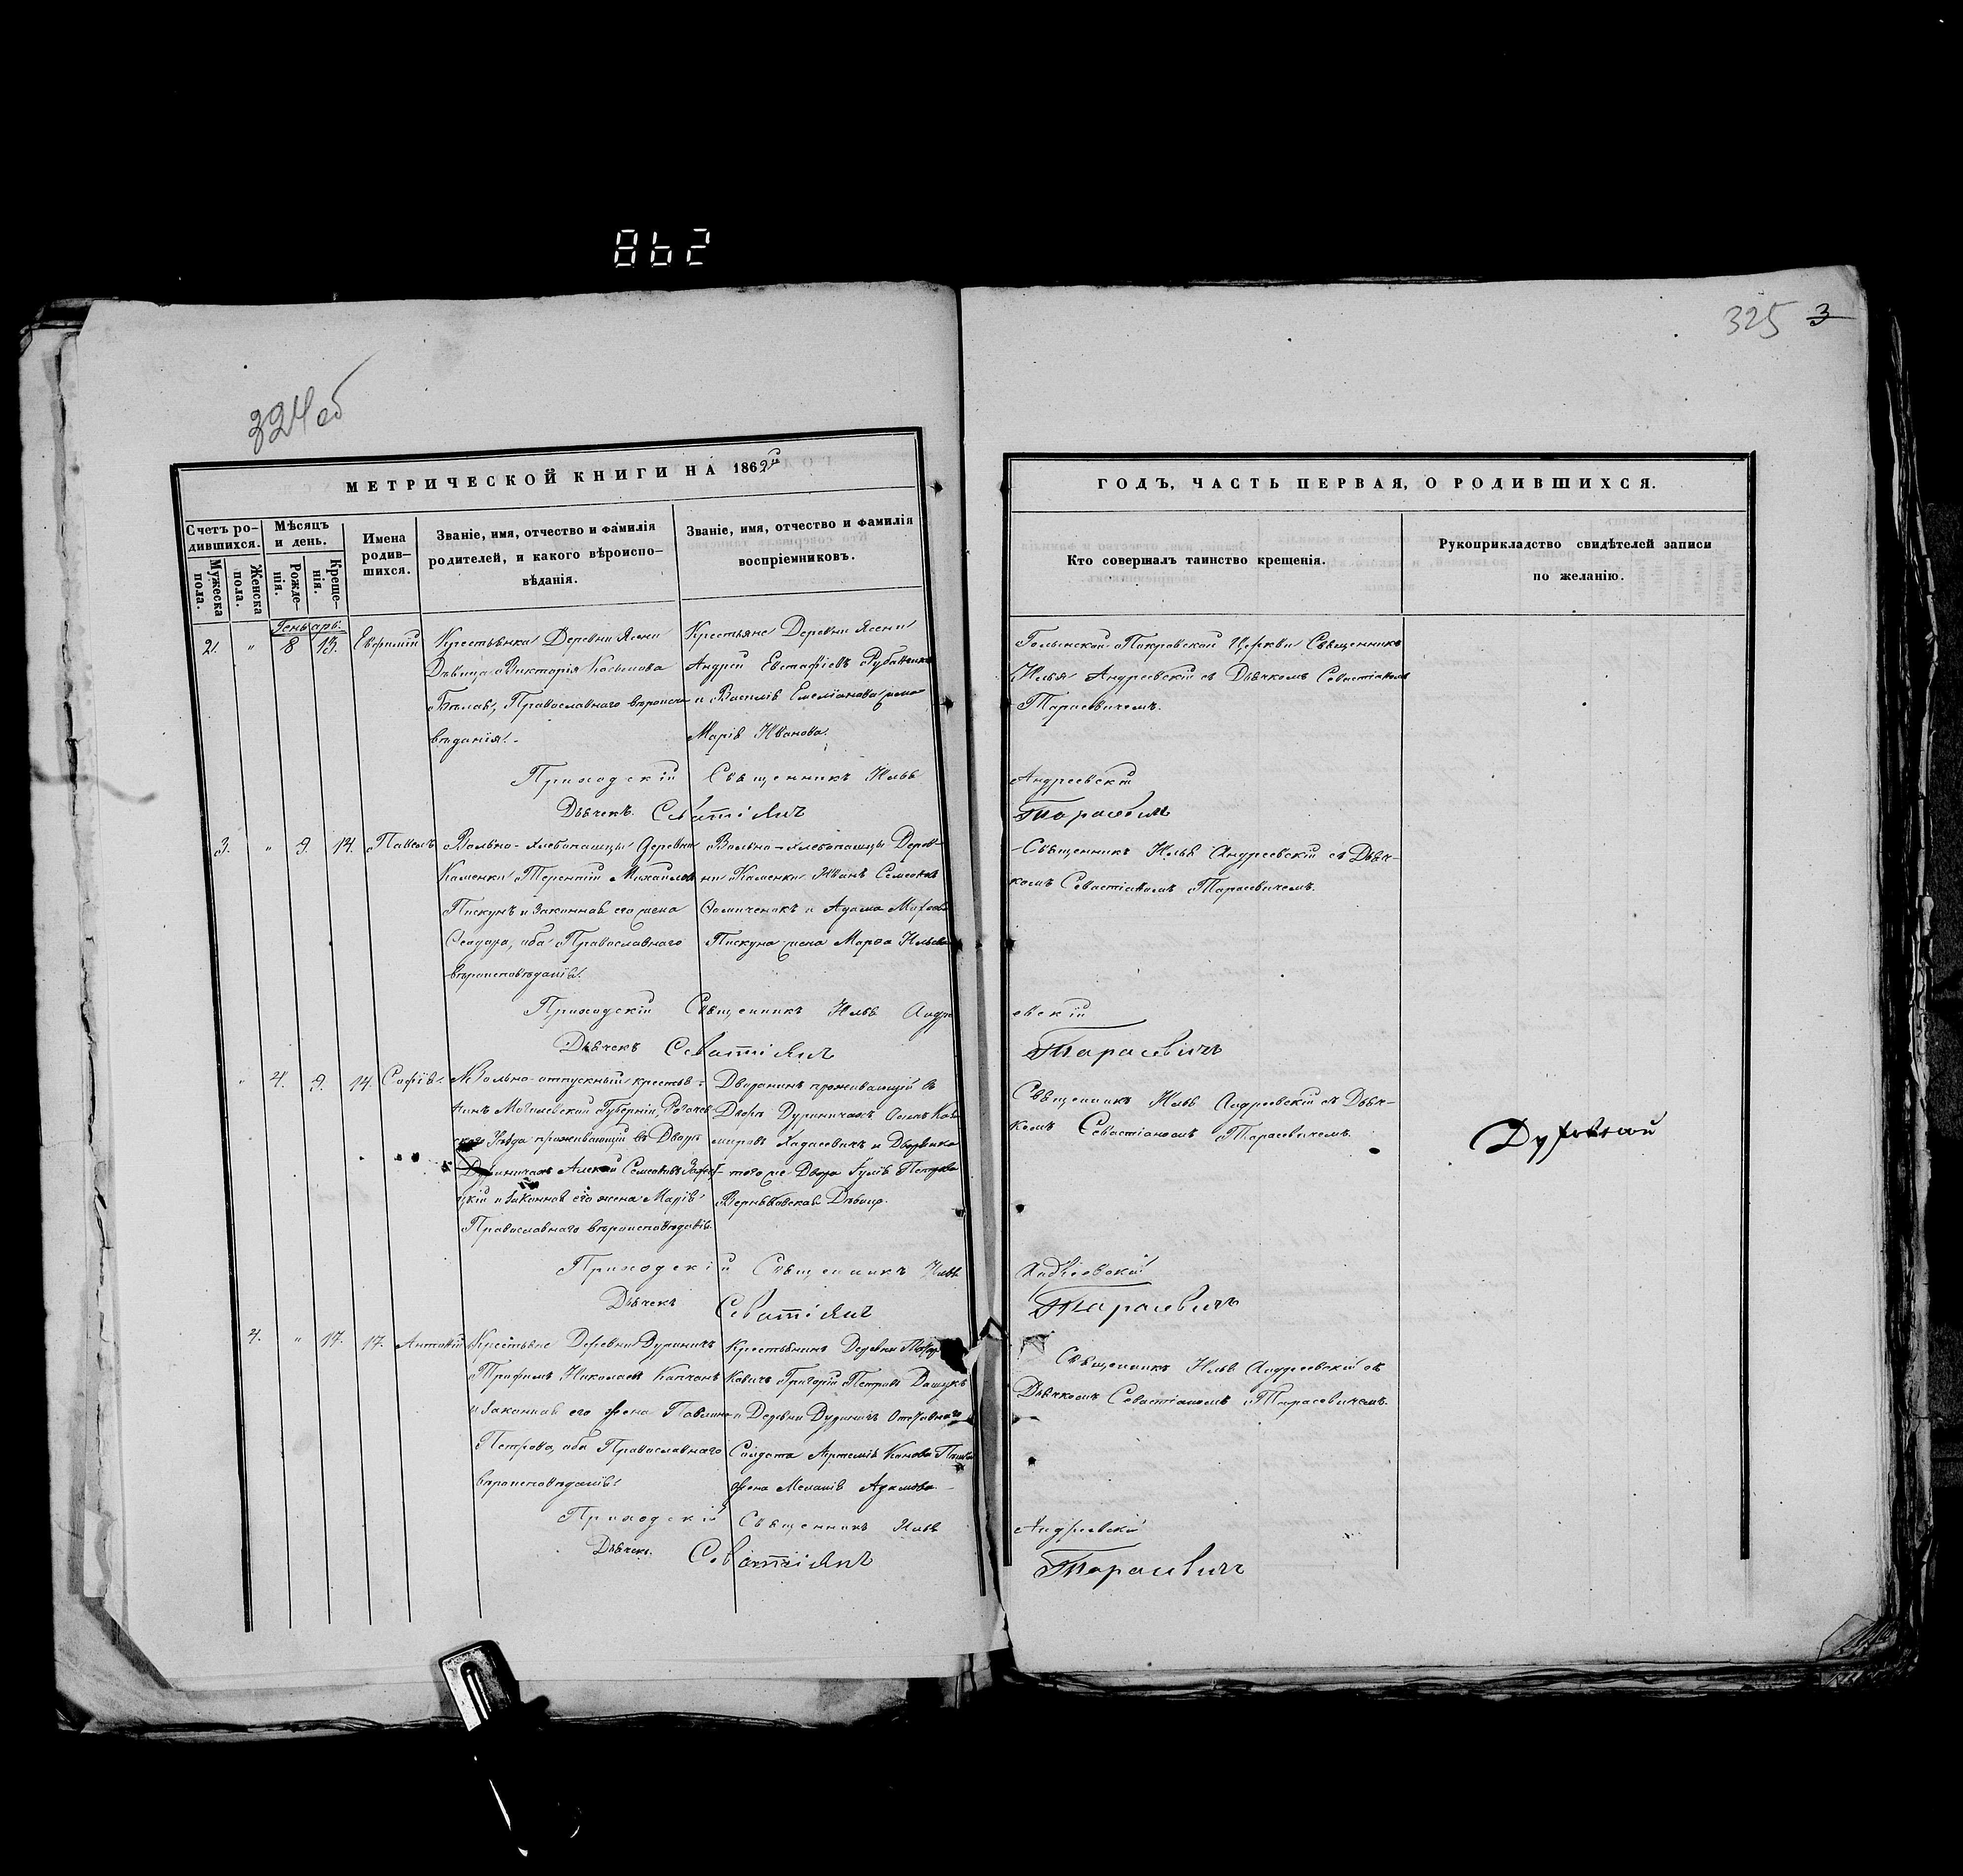 862
325 3
324 об
МЕТРИЧЕСКОЙ КНИГИ НА 1862й
Счетъ ро-
дившихся.
Мужеска
пола.
Женска
пола.
Мѣсяцъ
и день.
Рожде-
нія.
Креще-
нія.
Имена
родив-
шихся.
Званіе, имя, отчество и фамилія
родителей, и какого вѣроиспо-
вѣданія.
Званіе, имя, отчество и фамилія
воспріемниковъ.
ГОДЪ, ЧАСТЬ ПЕРВАЯ, О РОДИВШИХСЯ.
Кто совершалъ таинство крещенія.
Рукоприкладство свидѣтелей записи
по желанію.
Генварь.
2. " 8 13. Евфимій
Крестьянка Деревни Ясени
Дѣвица Викторія Косьмова
Бѣлая, Православнаго вѣроиспо
вѣданія.
Крестьяне Деревни Ясени
Андрей Евстафіевъ
и Василія Емеліанова жена
Марія Иванова.
Покровской Церкви Священникъ
Илья Андреевскій съ Дьячкомъ Севастіаномъ
Тарасевичемъ.
Приходскій Священникъ Илья Андреевскій
Дьячекъ Севастіянъ Тарасевичъ
3. " 9. 14. Павелъ
Вольно-хлебопашцы Деревни
Каменки Терентій Михайловъ
Пискунъ и Законная его жена
Ѳеодора, оба Православнаго
вѣроисповѣданія.
Вольно-хлебопашцы Дерев-
ни Каменки Иванъ Семеоновъ
и Адама
Пискуна жена Марѳа Ильева
Священникъ Илья Андреевскій съ Дьяч-
комъ Севастіаномъ Тарасевичемъ.
Приходскій Священникъ Илья Андре евскій
Дьячекъ Севастіянъ Тарасевичъ
" 4. 9. 14. Софія.
Вольно-отпускный крестья-
нинъ Могилевской Губерніи, Рогачев
скаго Уѣзда проживающій въ Дворѣ
Дуриничахъ Алексѣй Семеоновъ
цкій и Законная его жена Марія
Православнаго вѣроисповѣданія.
Дворянинъ проживающій въ
Дворѣ Дуриничахъ
Хадасевичъ и Дворянка
того же Двора Іулія Петрова
Дѣвица.
Священникъ Илья Андреевскій съ Дьяч-
комъ Севастіаномъ Тарасевичемъ.
Приходскій Священникъ Илья Андреевскій
Дьячекъ Севастіянъ Тарасевичъ
4. " 17. 17. Антоній
Крестьяне Деревни Дуриничъ
Трофимъ Николаевъ Капчанъ
и Законная его Жена Павлина
Петрова, оба Православнаго
вѣроисповѣданія.
Крестьянинъ Деревни
Григорій Петровъ Дашукъ
и Деревни Дуриничъ
Солдата Артемія
Жена Меланія Адамова
Священникъ Илья Андреевскій съ
Дьячкомъ Севастіаномъ Тарасевичемъ.
Приходскій Священникъ Илья Андреевскій
Дьячекъ Севастіянъ Тарасевичъ